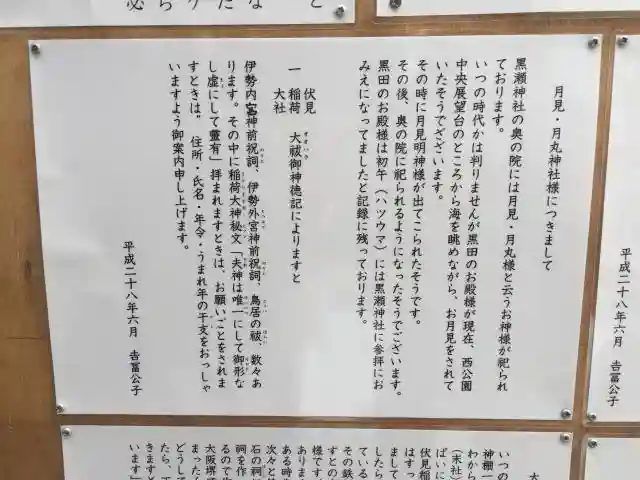 月見・月丸神社様につきまして
黒瀬神社の奥の院には月見・月丸様と云うお神様が祀られ
ております。
いつの時代かは判りませんが黒田のお殿様が現在、西公園
中央展望台のところから海を眺めながら、お月見をされて
いたそうでございます。
その時に月見明神様が出てこられたそうです。
その後、奥の院に祀られるようになったそうでございます。
黒田のお殿様は初午(ハツウマ)には黒瀬神社に参拝にお
みえになってましたと記録に残っております。
一 伏見稲荷大社 大祓御神徳記によりますと
伊勢内宮神前祝詞、伊勢外宮神前祝詞、鳥居の祓、数々あ
ります。その中に稲荷大神秘文「夫神は唯一にして御形な
し虚にして霊有」拝まれますときは、お願いごとをされま
すときは〝住所・氏名・年令・うまれ年の干支をおっしゃ
いますよう御案内申し上げます。
平成二十八年六月 吉冨公子
平成二十八年六月 吉冨公子
いつの
神棚一
わから
(末社)
ばいに
伏見稲
はすっ
まして
したら
ている
その鉄
すとの
様です
ありま
ある時
次々と
石の祠
祠を作
るので
大阪堺
まった
どうし
たら、
きます
います」